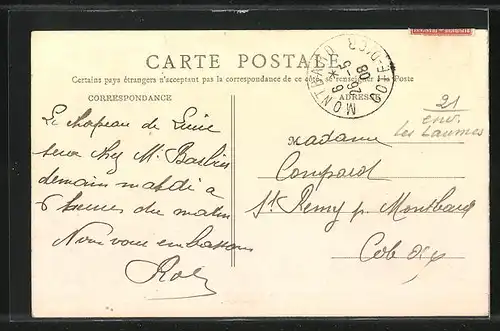 CARTE POSTALE
Certains pays étrangers n'acceptant pas la correspondance de ce côté se renseigner à la Poste
CORRESPONDANCE
ADRESSE
MONTBARD CÔTE-D'OR
26-5
08
21
env.
Les Laumes
Le chapeau de Lucie
sera chez M. Barbier
demain mardi à
6 heures du matin
Nous vous embrassons
Madame
Compard
St Remy p. Montbard
Cote d'or